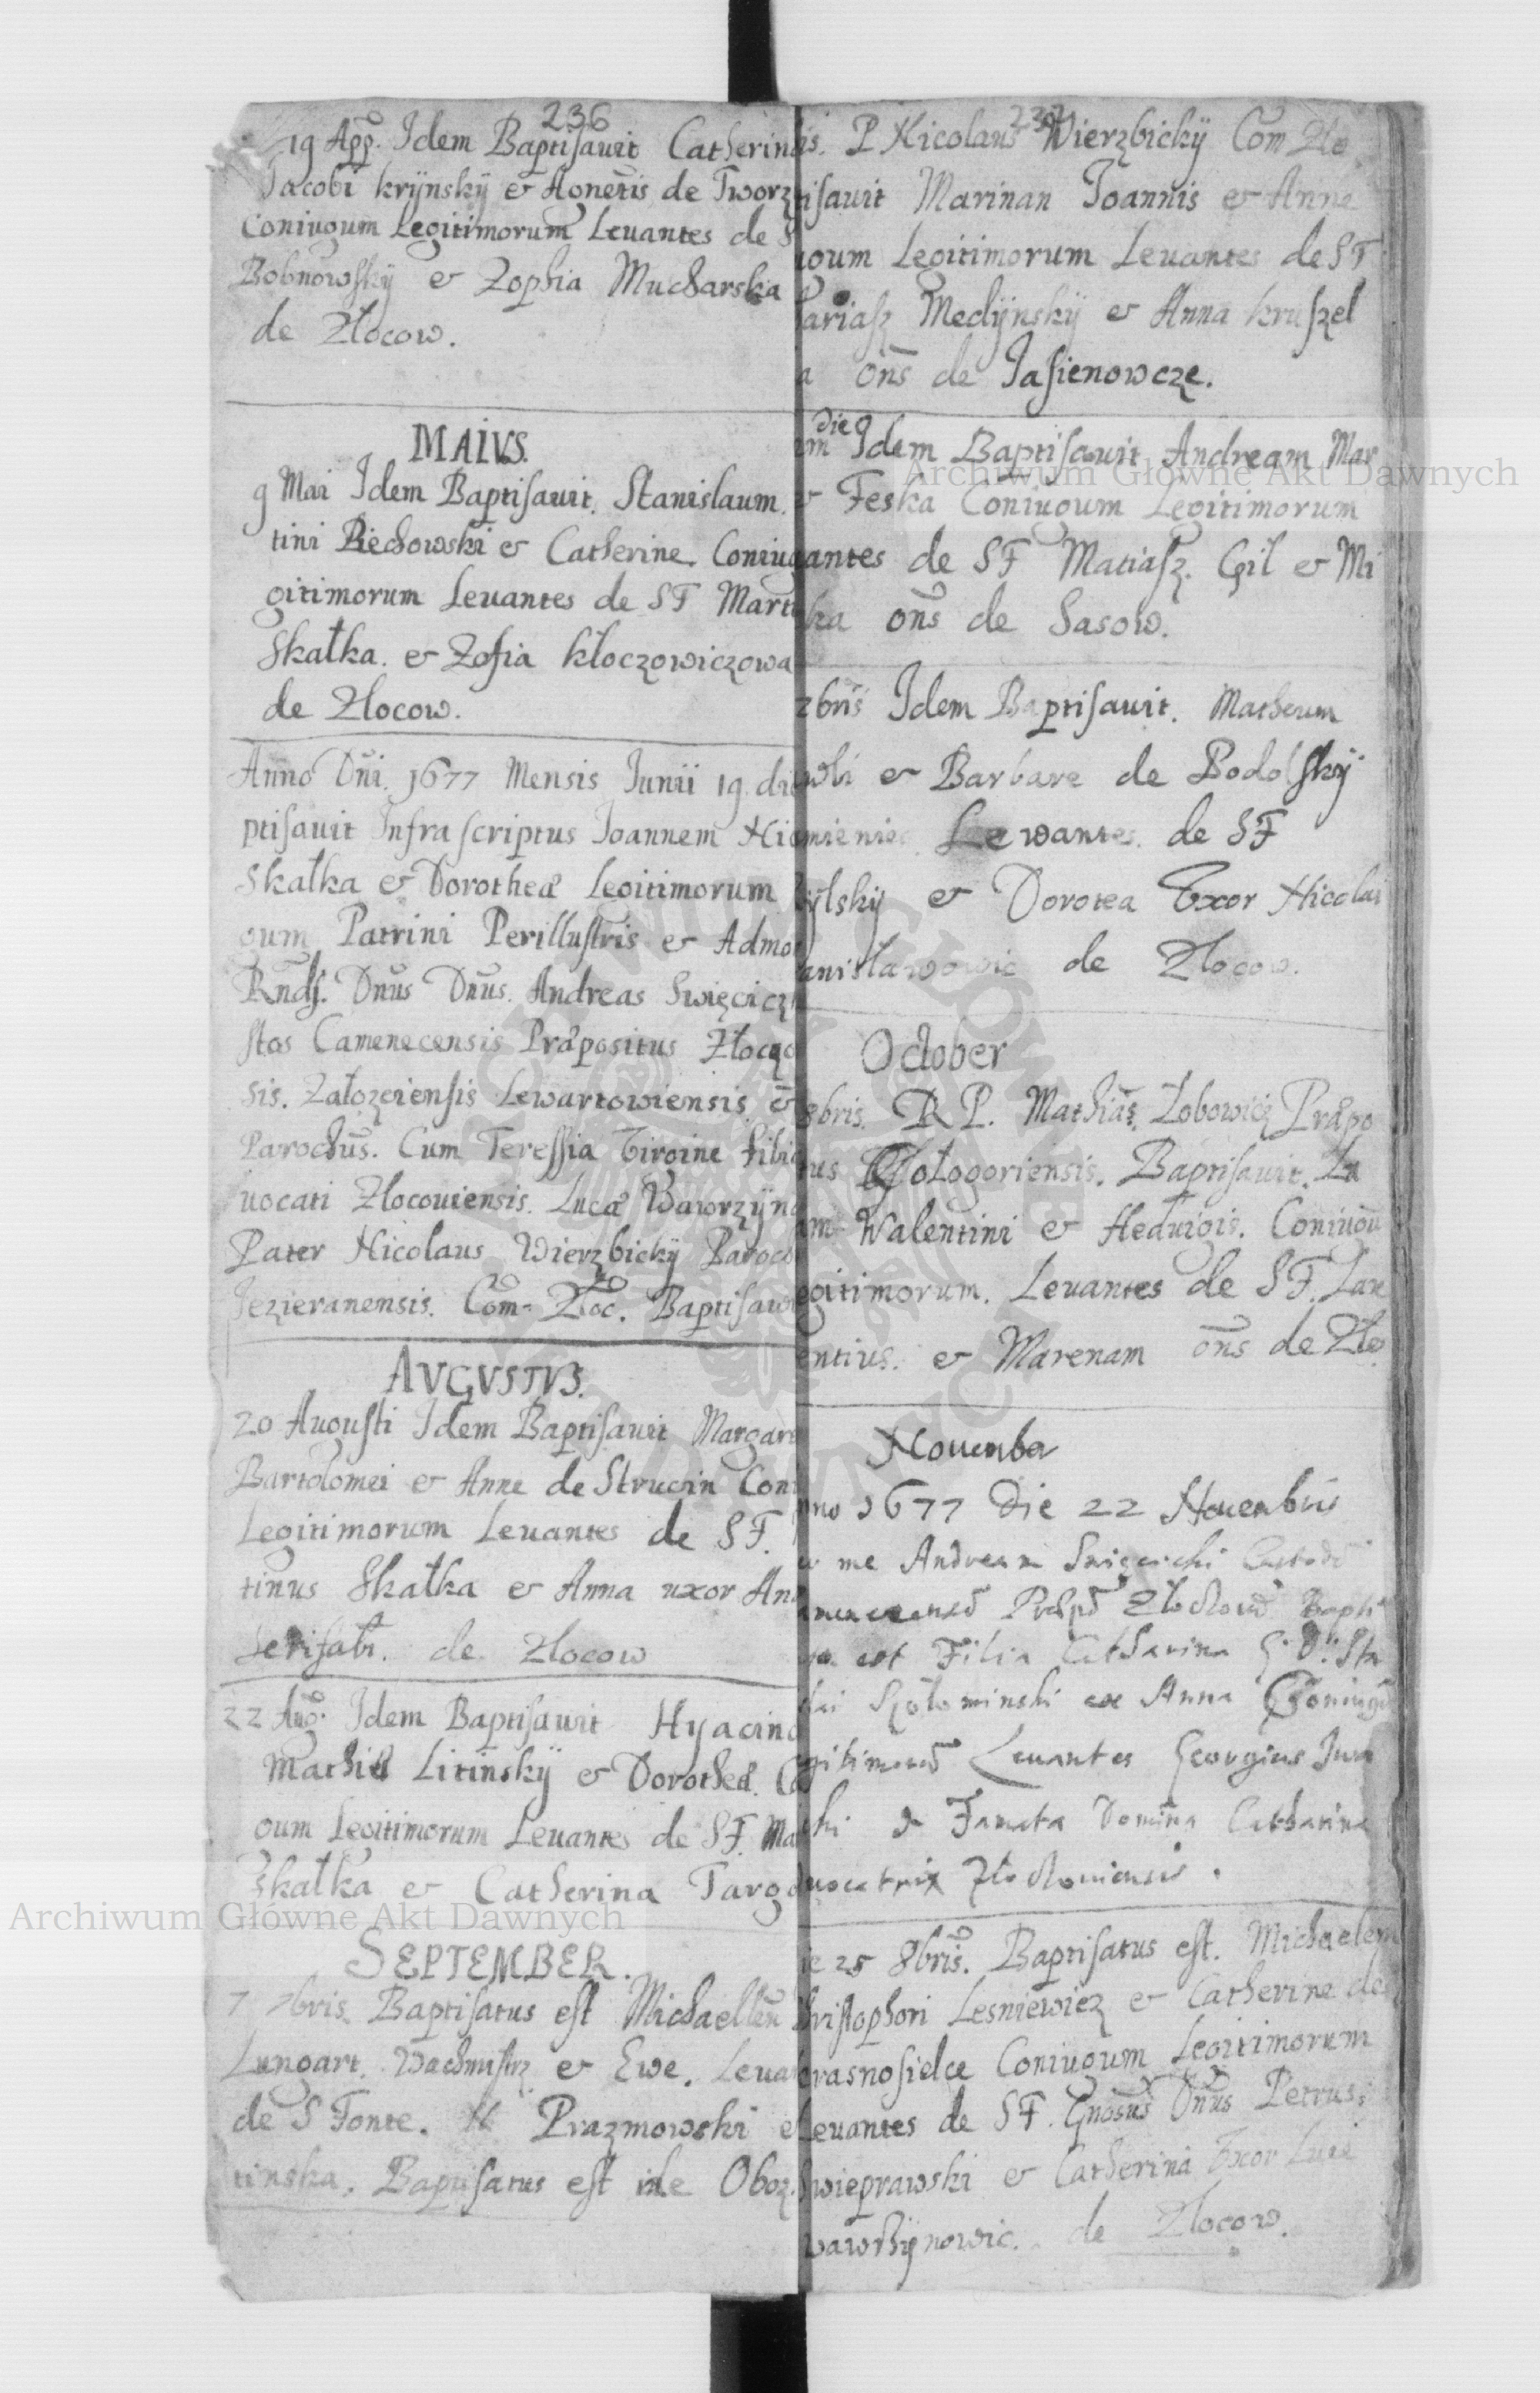 236
19 App. Idem Baptisauit Catherin
Jacobi Krÿnskÿ & Agnetis de Tworz
Coniugum Legitimorum Leuantes de S
Bobnowskÿ & Zophia Mucharska
de Złocow.
MAIVS.
9 Mai Idem Baptisauit. Stanislaum.
tini Piechowski & Catherine Coniug
gitimorum Leuantes de SF Mart
Skałka. & Zofia Kłoczowiczowa
de Złocow.
Anno Dni. 1677 Mensis Junii 19. di
ptisauit Infra scriptus Joannem Ni
Skałka & Dorotheæ Legitimorum
gum Patrini Perillustris & Admo
Rnds. Dnus Dnus. Andreas Swięcicz
stos Camenecensis Præpositus Złoczo
sis. Załozeiensis Lewartowiensis &
Parochus. Cum Teressia Viroine filia
uocati Złocouiensis. Lucæ Wawrzÿn
Pater Nicolaus Wierzbickÿ Paroc
Jezieranensis. Com. Zloc. Baptisaui
AVGVSTVS.
20 Augusti Idem Baptisauit Margar
Bartolomei & Anne de Strucin Con
Legitimorum Leuantes de SF.
tinus Skałka & Anna uxor An
de Złocow
22 Aug. Idem Baptisauit Hyacin
Mathiæ Litinskÿ & Dorotheæ. Co
gum Legitimorum Leuantes de SF. Ma
Skałka & Catherina Targ
SEPTEMBER.
7 7bris. Baptisatus est Michaellem
Lungart. Wachmistrz & Ewe. Leua
de S Fonte. N Prazmowski e
tinska. Baptisatus est in Oboz.
237
is. P Nicolaus Wierzbickÿ Com Zlo
tisauit Marinan Joannis & Anne
goum Legitimorum Leuantes de SF
ariasz Medÿnskÿ & Anna kruszel
a ons de Jasienowcze.
die
im Idem Baptisauit Andream Mar
& Feska Coniugum Legitimorum
antes de SF Matiasz. Gil & Mi
ka ons de Sasow.
7bris Idem Baptisauit. Matheum
wli & Barbare de Podolskÿ
mieniec Lewantes. de SF
ÿlskÿ & Dorotea Vxor Nicolai
anisławowic de Złocow.
October
8bris. R P. Mathias. Zobowicz Præpo
tus Gologoriensis. Baptisauit. Lu
am Walentini & Heduigis. Coniugu
egitimorum. Leuantes de SF. Lau
entius. & Marenam ons de Zło
Nouember
nno 1677 Die 22 Nouenbris
me Andream Swięcicki Custode
Præpo Złochow Bapti
ta est Filia Catharina G. D. Sta
lai & Anna Coniugu
gitimoru Leuantes Georgius Jwa
ski & Famata Domina Catharina
duocatrix Złochouiensis.
ie 25 8bris. Baptisatus est. Michaelem
hristophori Lesniewicz & Catherine de
krasnosielce Coniugum Legitimorum
Leuantes de SF. Gnosus Dnus Petrus.
Swieprawski & Catherina Vxor Luce
wawrzÿnowic. de Złocow.
Archiwum Główne Akt Dawnych
Archiwum Główne Akt Dawnych